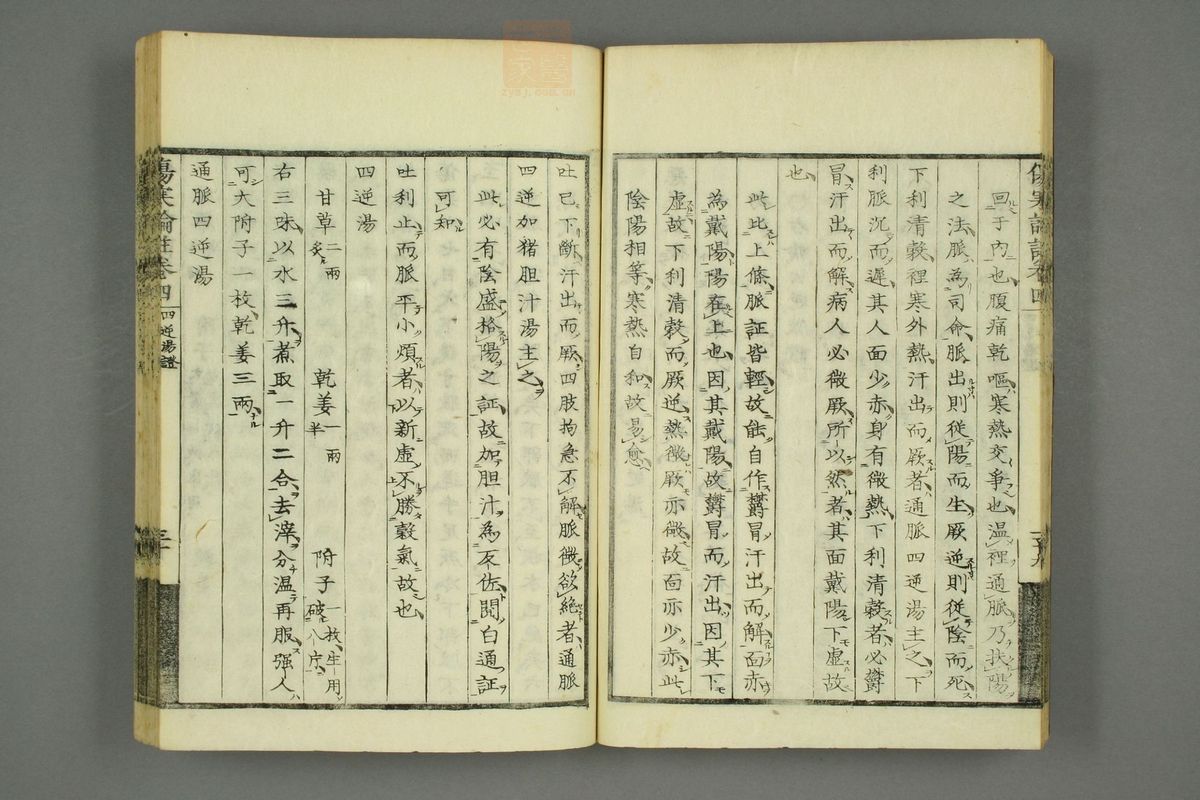 回于內也腹痛乾嘔寒熱交爭也溫裡通脈乃扶陽
之法脈為司命脈出則從陽而生厥逆則從陰而死
下利清穀裡寒外熱汗出而厥者通脈四逆湯主之下
利脈沉而遲其人面少赤身有微熱下利清穀者必欝
冒汗出而解病人必微厥所以然者其面戴陽下虛故
也
此比上條脈証皆輕故能自作欝冒汗出而解面赤
為戴陽陽在上也因其戴陽故欝冒而汗出因其下
虛故下利清穀而厥逆熱微厥亦微故面亦少赤此
陰陽相等寒熱自和故易愈
吐已下斷汗出而厥四肢拘急不解脈微欲絕者通脈
四逆加猪胆汁湯主之
此必有陰盛格陽之証故加胆汁為反佐閱白通証
可知
吐利止而脈平小煩者以新虛不勝穀氣故也
四逆湯
甘草二兩炙 乾姜一兩半 附子一枚生用破八片
右三味以水三升煮取一升二合去滓分溫再服强人
可大附子一枚乾姜三兩
通脈四逆湯
傷寒論註卷四 四逆湯證 三十